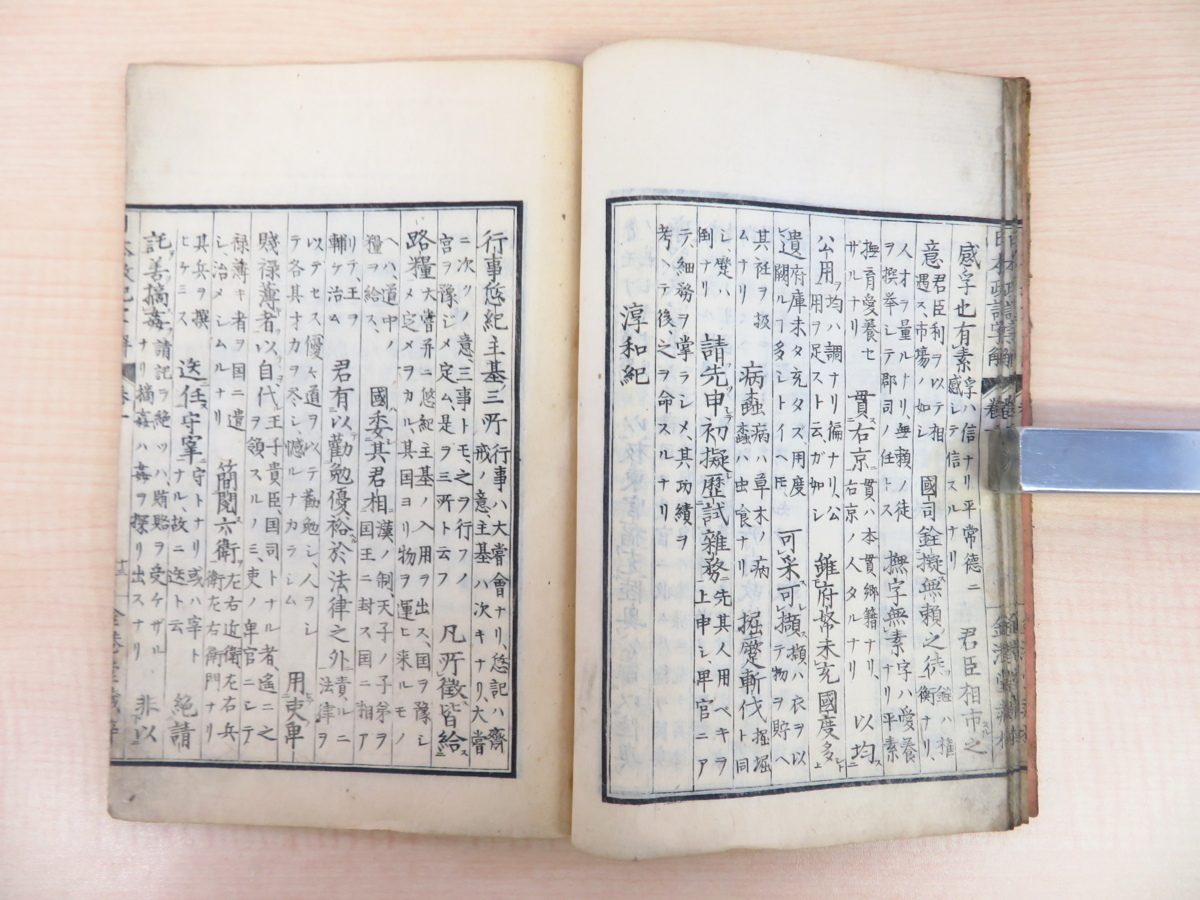 日本政記字解 卷一
感孚也有素 孚ハ信ナリ平常德ニ感シテ信スルナリ 君臣相市之
意 君臣利ヲ以テ相遇ス市場ノ如シ 國司銓擬無賴之徒 銓ハ權衡ナリ、
人才ヲ量ルナリ、無賴ノ徒ヲ撰挙シテ郡司ノ任トス 撫字無素 字ハ愛養ナリ平素
撫育愛養セサルナリ 貫右京 貫ハ本貫鄉籍ナリ、右京ノ人タルナリ 以均
公用 均ハ調ナリ偏ナリ、公用ヲ足スト云ガ如シ 雖府帑未充國度多
遺 府庫未タ充タズ用度闕ルヿ多シトイヘ𪜈 可采可擷 擷ハ衣ヲ以テ物ヲ貯ヘ
其衽ヲ扱ムナリ 病蟲 病ハ草木ノ病蟲ハ虫食ナリ 掘蹙斬伐 掘ト同
シ、蹙ハ倒ナリ 請先申初擬歷試雜務 先其人用ユベキヲ上申シ、卑官ニア
テ、細務ヲ掌ラシメ、其功績ヲ考ヘテ後、之ヲ命スルナリ
淳和紀
行事悠紀主基三所 行事ハ大嘗會ナリ、悠記ハ齋戒ノ意主基ハ次キナリ、大嘗
ニ次クノ意、三事トモ之ヲ行フノ宮ヲ豫シメ定ム、是ヲ三所ト云フ 凡所徵皆給
路糧 大嘗幷ニ悠紀主基ノ入用ヲ出ス、国ヲ豫シメ定メヲカル、其国ヨリ物ヲ運ヒ来ルモノ
ヘハ、道中ノ糧ヲ給ス 國委其君相 漢ノ制、天子ノ子弟ヲ国王ニ封ス国ニ相ア
リテ、王ヲ輔ケ治ム 君有以勸勉優裕於法律之外 責ルニ法律ヲ
以テセス優ナル道ヲ以テ勸勉シ、人ヲシテ各其才カヲ尽シ、憾ルナカラシム 用吏卑
賤禄薄者以自代 王子貴臣、国司トナル者遥ニ之ヲ領スルノミ、吏ノ卑官ニシテ
禄薄キ者ヲ国ニ遣シ、治メシムルナリ 簡閲六衛 左右近衛左右兵衛左右衛門ナリ
其兵ヲ撰ヒケミス 迭任守宰 守トナリ或ハ宰トナル、故ニ迭ト云 絶請
託善摘姦 請記ヲ絶ツハ、賄賂ヲ受ケザルナリ摘姦ハ姦ヲ探リ出スナリ 非以